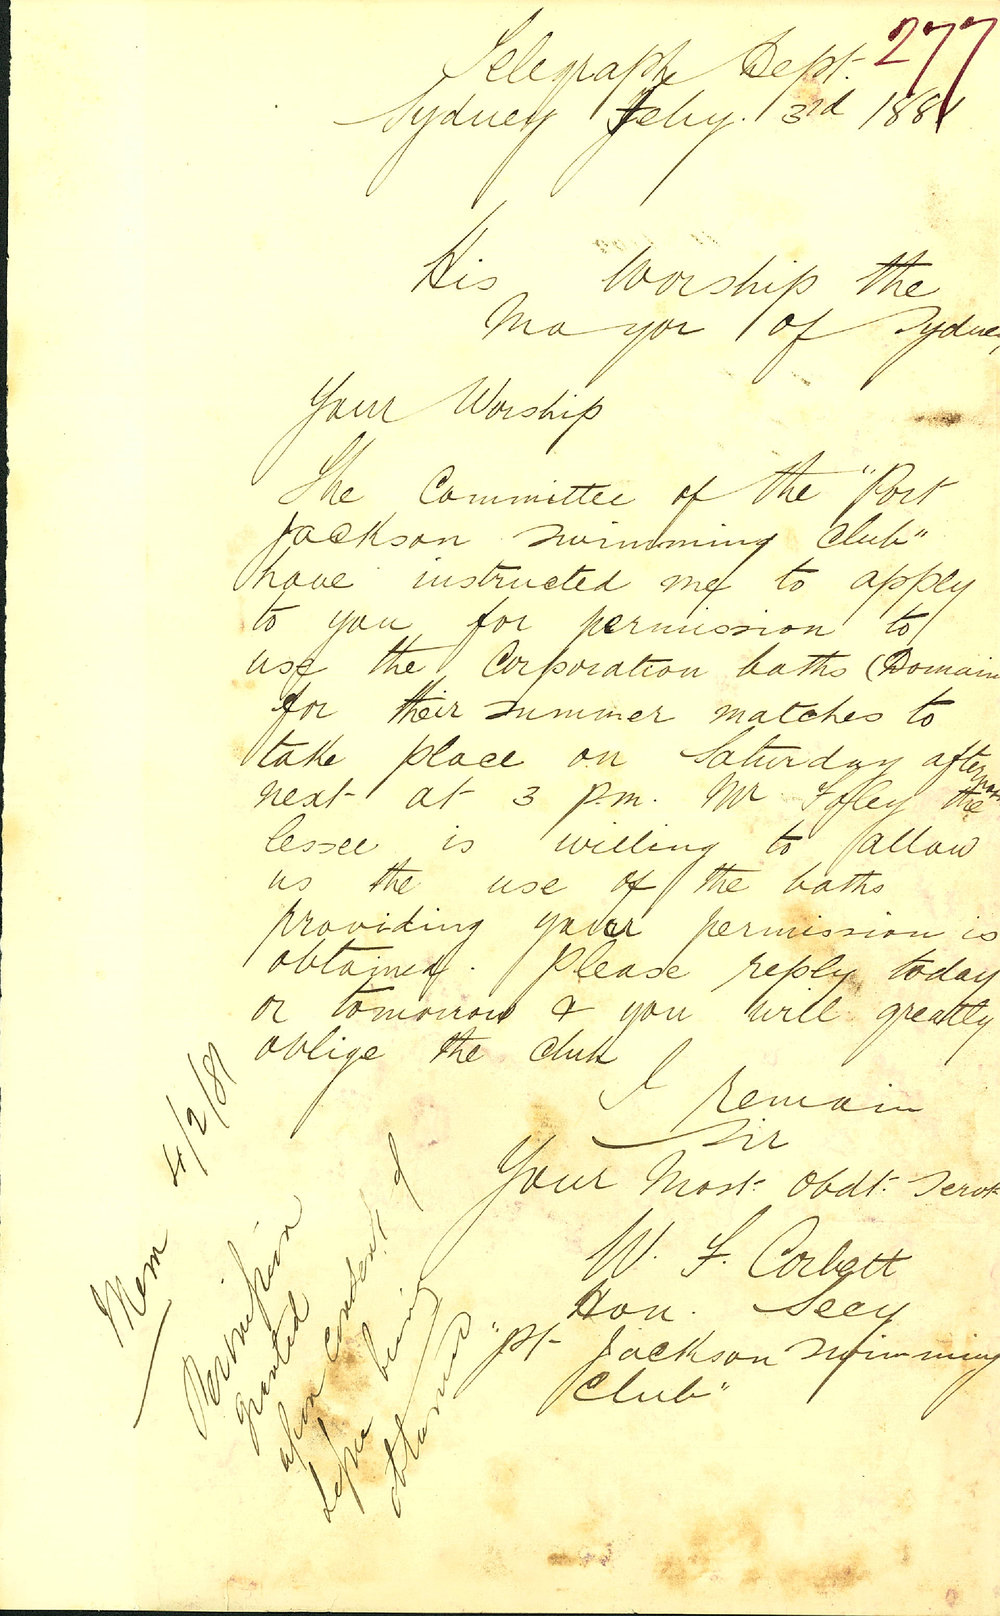 277
Telegraph Dept.
Sydney Feby. 3rd 1881
His Worship the
Mayor of Sydney
Your Worship
The Committee of the "Port
Jackson Swimming Club"
have instructed me to apply
to you for permission to
use the Corporation baths (Domain
for their summer matches to
take place on Saturday afternoon
next at 3 p.m. Mr Foley the
lessee is willing to allow
us the use of the baths
providing your permission is
obtained. Please reply today
or tomorrow & you will greatly
oblige the club
I remain
Sir
Your Most Obdt. Servt
W. F. Corbett
Hon. Secy
"Pt Jackson Swimming
Club"
Mem 4/2/81
Permission
granted
upon consent of
Lessee being
obtained